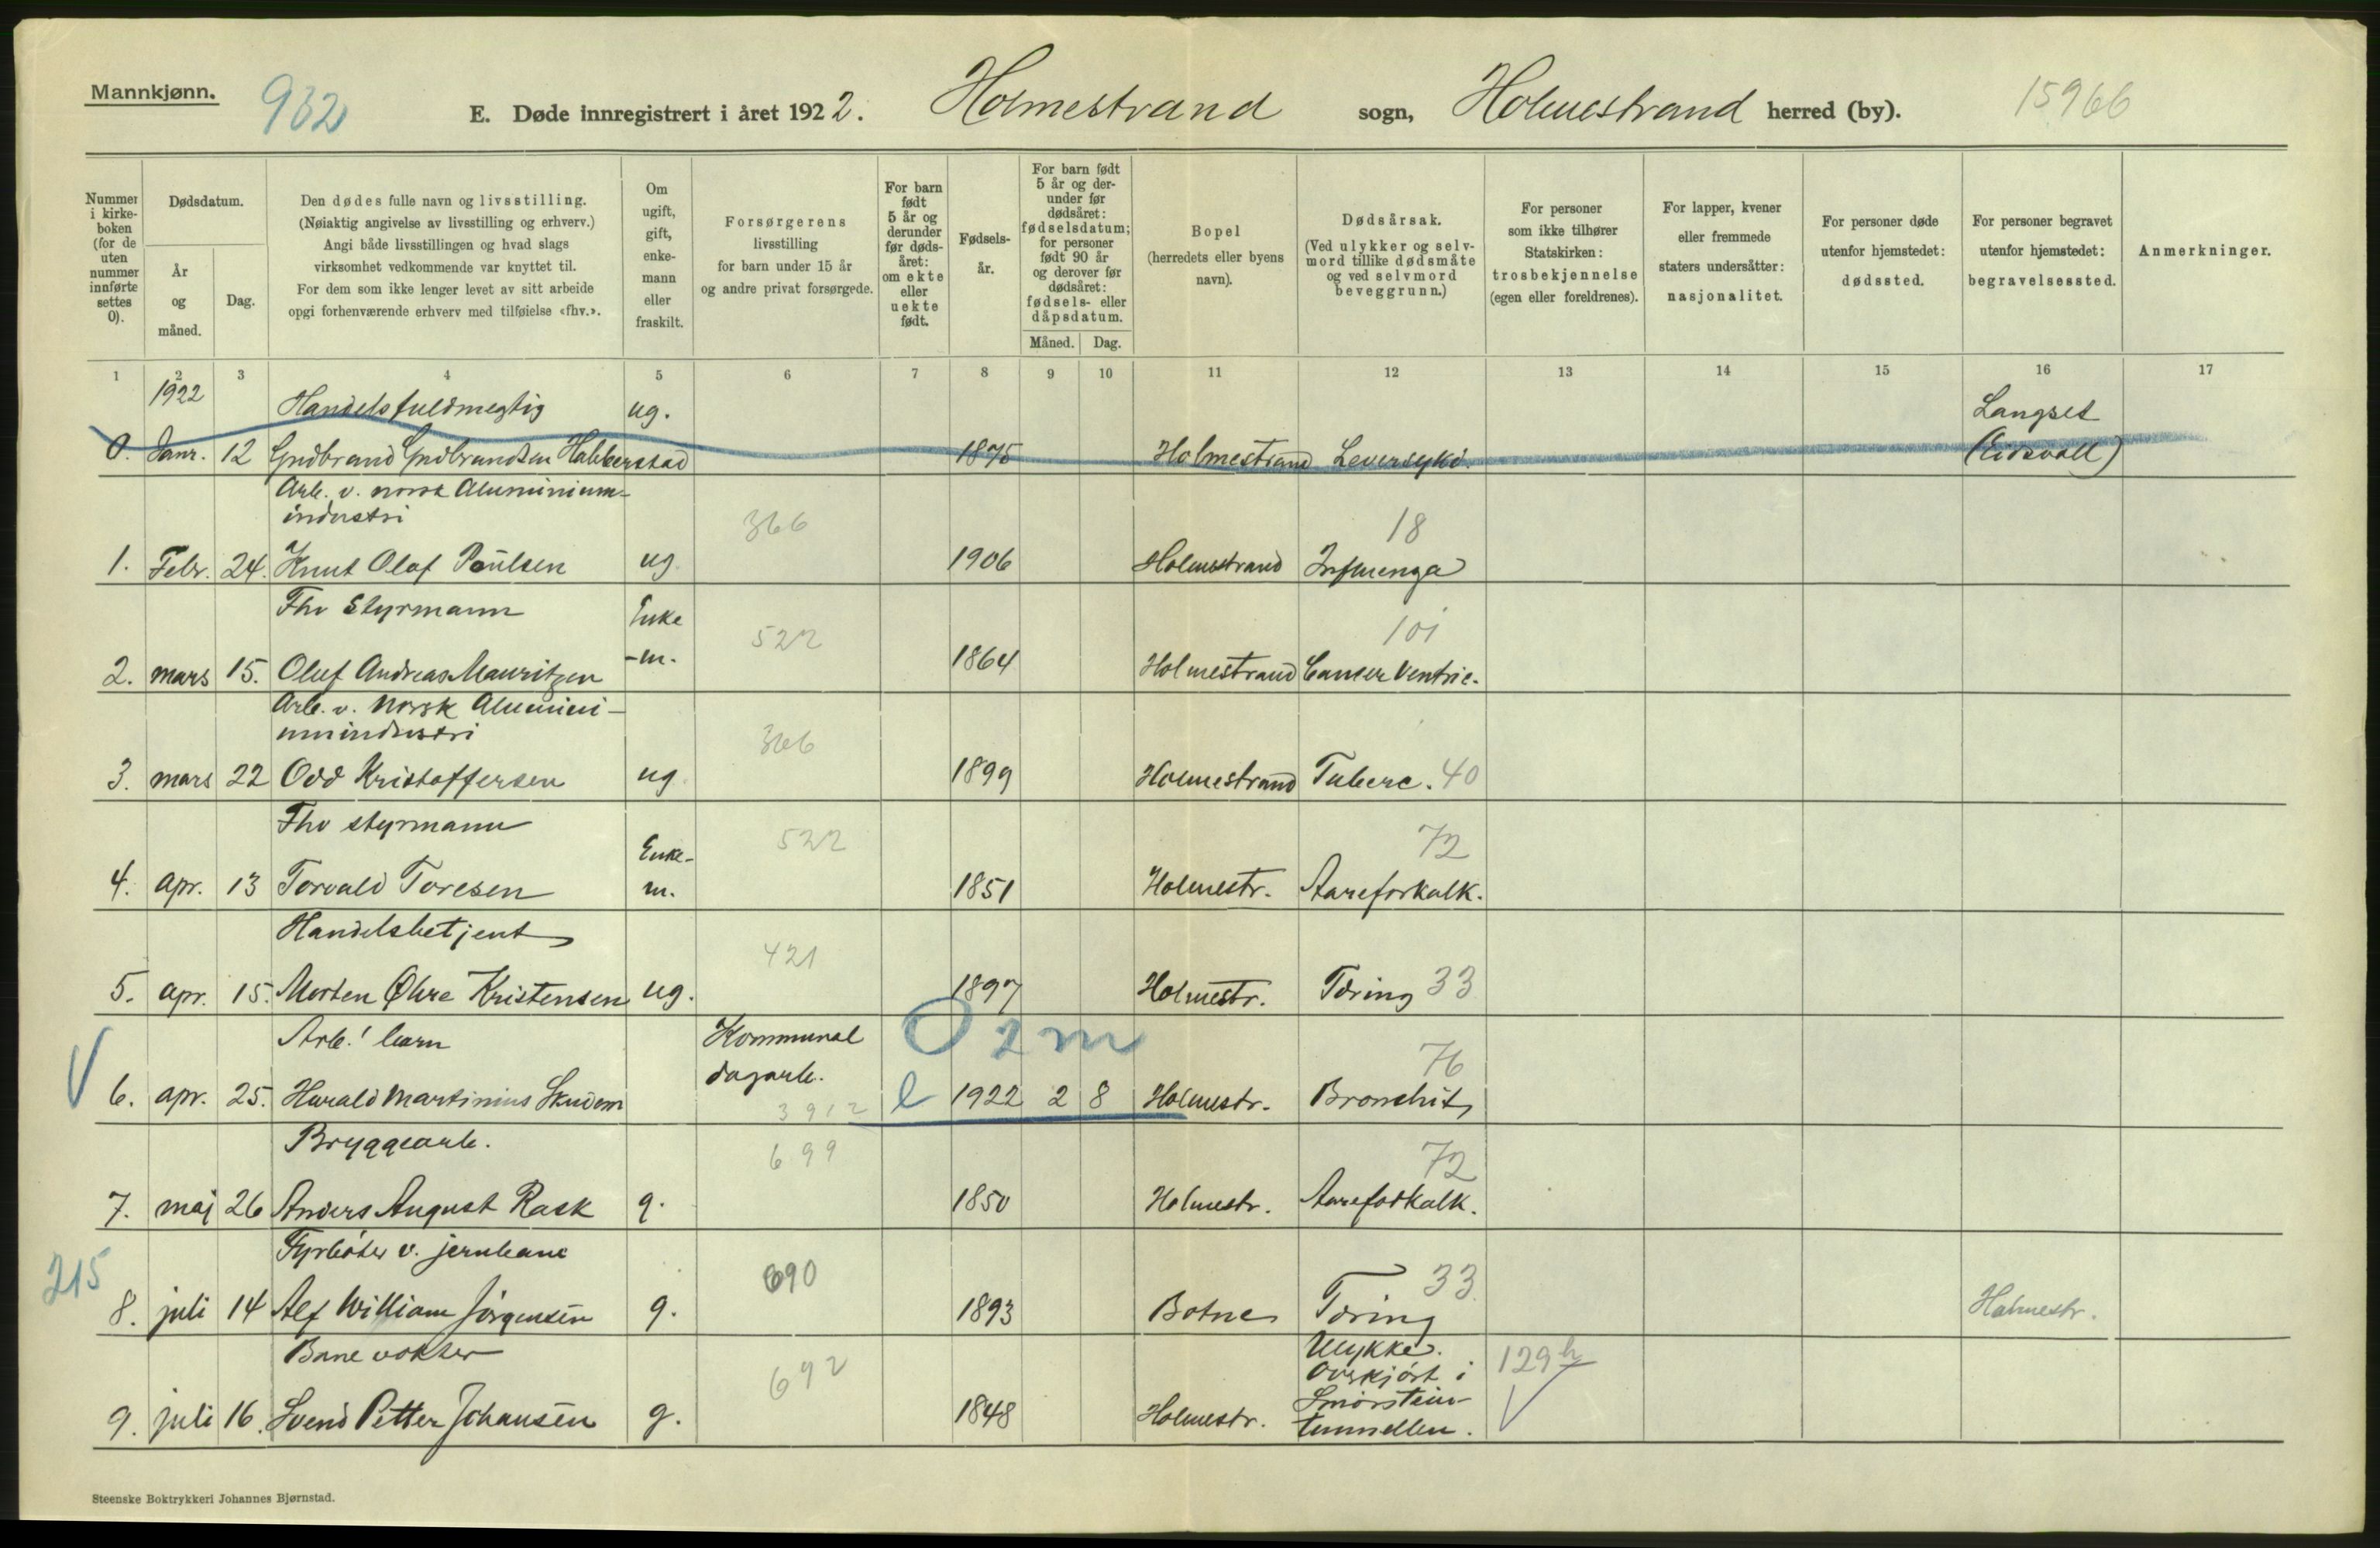 Mannkjønn.
932
E. Døde innregistrert i året 1922. Holmestrand sogn, Holmestrand herred (by).
15966
Nummer i kirkeboken (for de uten nummer innførte settes 0).
Dødsdatum.
År og måned.
Dag.
Den dødes fulle navn og livsstilling.
(Nøiaktig angivelse av livsstilling og erhverv.)
Angi både livsstillingen og hvad slags
virksomhet vedkommende var knyttet til.
For dem som ikke lenger levet av sitt arbeide
opgi forhenværende erhverv med tilføielse «fhv.».
Om ugift, gift, enkemann eller fraskilt.
Forsørgerens
livsstilling
for barn under 15 år
og andre privat forsørgede.
For barn født 5 år og derunder før dødsåret: om ekte eller uekte født.
Fødselsår.
For barn født 5 år og derunder før dødsåret: fødselsdatum; for personer født 90 år og derover før dødsåret: fødsels- eller dåpsdatum.
Måned.
Dag.
Bopel
(herredets eller byens
navn).
Dødsårsak.
(Ved ulykker og selvmord tillike dødsmåte og ved selvmord beveggrunn.)
For personer
som ikke tilhører
Statskirken:
trosbekjennelse
(egen eller foreldrenes).
For lapper, kvener
eller fremmede
staters undersåtter:
nasjonalitet.
For personer døde
utenfor hjemstedet:
dødssted.
For personer begravet
utenfor hjemstedet:
begravelsessted.
Anmerkninger.
1 2 3 4 5 6 7 8 9 10 11 12 13 14 15 16 17
1922 Handelsfuldmegtig ug. Langset
0. Janr. 12 Gudbrand Gudbrandsen Habberstad 1875 Holmestrand Leversykd. (Eidsvoll)
Arb. v. norsk Aluminium-
industri 366 18
1. Febr. 24. Knut Olaf Paulsen ug. 1906 Holmestrand Influenza
Fhv Styrmann Enke 522 101
2. mars 15. Oluf Andreas Mauritzen -m. 1864 Holmestrand Cancer Ventric.
Arb. v. Norsk Alumini-
umindustri 366
3. mars 22 Odd Kristoffersen ug. 1899 Holmestrand Tuberc. 40
Fhv styrmann Enke- 522 72
4. apr. 13 Torvald Toresen m. 1851 Holmestr. Aareforkalk.
Handelsbetjent 421
5. apr. 15. Morten Øhre Kristensen ug. 1897 Holmestr. Tæring 33
Arb.' barn Kommunal 0 2 m 76
dagarb.
6. apr. 25. Harald Martinius Skudem 3912 e 1922 2 8 Holmestr. Bronchit
Bryggearb. 699 72
7. maj 26 Anders August Rask g. 1850 Holmestr. Aareforkalk.
215 Fyrbøter v. jernbane 690 33
8. juli 14 Alf William Jørgensen g. 1893 Botne Tæring Holmestr.
Banevokter 692 Ulykke. 129 h
Overkjørt i
Smørstein-
9. juli 16. Svend Petter Johansen g. 1848 Holmestr. tunnellen.
Steenske Boktrykkeri Johannes Bjørnstad.